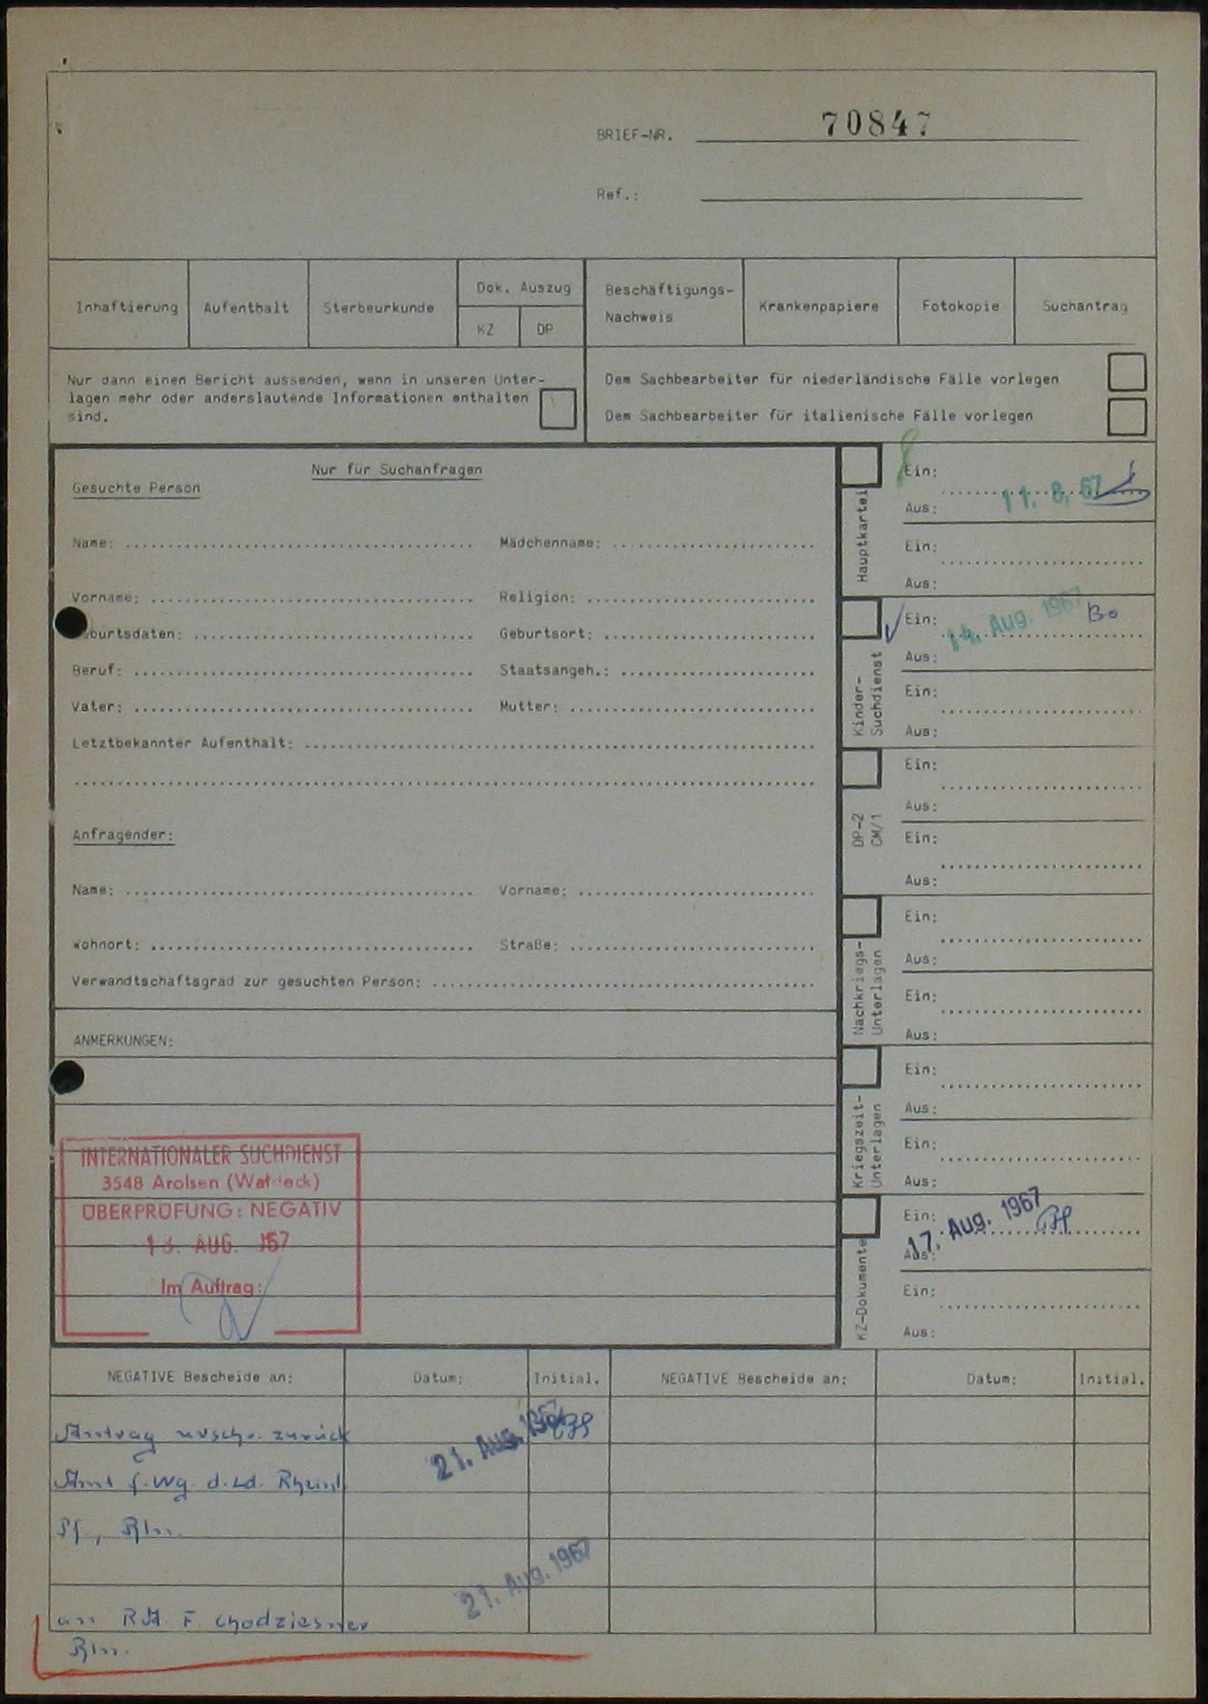 BRIEF-NR. 70847
Ref.:
Inhaftierung Aufenthalt Sterbeurkunde Dok. Auszug KZ DP Beschäftigungs-Nachweis Krankenpapiere Fotokopie Suchantrag
Nur dann einen Bericht aussenden, wenn in unseren Unter-
lagen mehr oder anderslautende Informationen enthalten
sind.
Dem Sachbearbeiter für niederländische Fälle vorlegen
Dem Sachbearbeiter für italienische Fälle vorlegen
Nur für Suchanfragen
Gesuchte Person
Name: Mädchenname:
Vorname: Religion:
Geburtsdaten: Geburtsort:
Beruf: Staatsangeh.:
Vater: Mutter:
Letztbekannter Aufenthalt:
Anfragender:
Name: Vorname:
Wohnort: Straße:
Verwandtschaftsgrad zur gesuchten Person:
ANMERKUNGEN:
INTERNATIONALER SUCHDIENST
3548 Arolsen (Waldeck)
ÜBERPRÜFUNG: NEGATIV
AUG.
Im Auftrag:
Hauptkartei
Ein: 11. 8. 67
Aus:
Ein:
Aus:
Kinder-
Suchdienst
Ein: 14. Aug. 1967 Bo
Aus:
Ein:
Aus:
DP-2
CM/1
Ein:
Aus:
Ein:
Aus:
Nachkriegs-
Unterlagen
Ein:
Aus:
Ein:
Aus:
Kriegszeit-
Unterlagen
Ein:
Aus:
Ein:
Aus:
KZ-Dokumente
Ein: 17. Aug. 1967
Aus:
Ein:
Aus:
NEGATIVE Bescheide an: Datum: Initial. NEGATIVE Bescheide an: Datum: Initial.
Antrag urschr. zurück 21. Aug. 1967
Amt f. Wg. d. Ld. Rheinl
Pf, Bln.
21. Aug. 1967
an RA. F. Chodziesner
Bln.